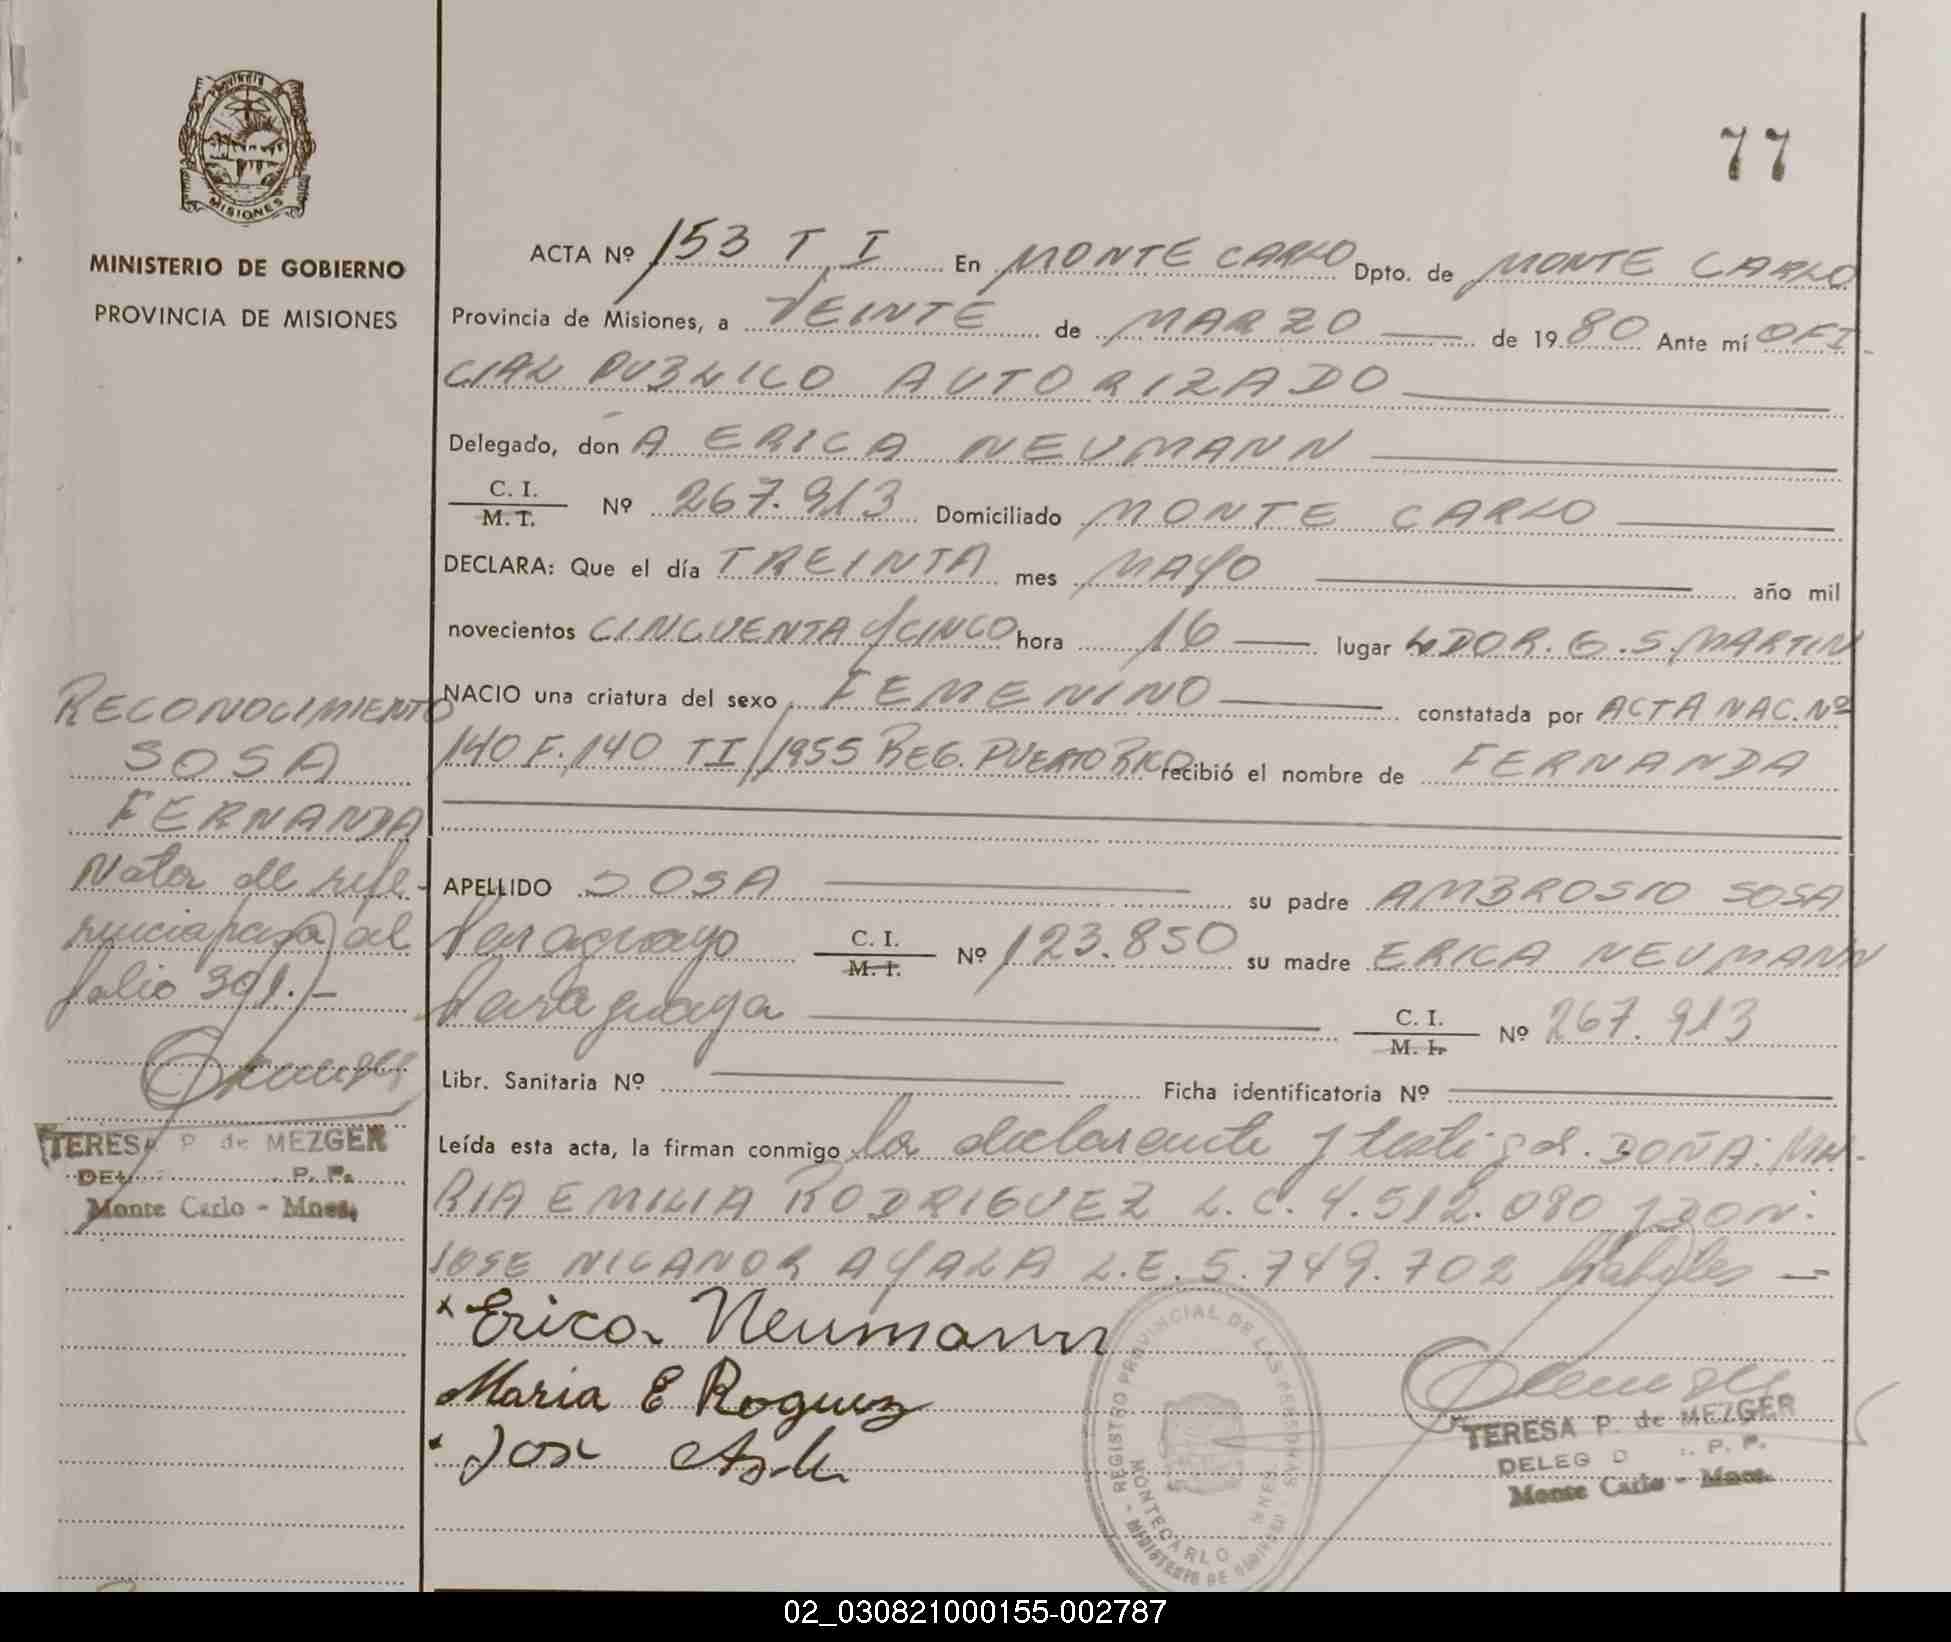 77
PROVINCIA
MISIONES
MINISTERIO DE GOBIERNO
PROVINCIA DE MISIONES
ACTA Nº 153 T I En MONTE CARLO Dpto. de MONTE CARLO
Provincia de Misiones, a VEINTE de MARZO de 1980 Ante mí OFI-
CIAL PUBLICO AUTORIZADO
Delegado, don A ERICA NEUMANN
C. I.
M. I. Nº 267.913 Domiciliado MONTE CARLO
DECLARA: Que el día TREINTA mes MAYO año mil
novecientos CINCUENTA Y CINCO hora 16 lugar LDOR. G. S. MARTIN
NACIO una criatura del sexo FEMENINO constatada por ACTA NAC. Nº
140 F. 140 TI/1955 REG. PUERTO RICO recibió el nombre de FERNANDA
APELLIDO SOSA su padre AMBROSIO SOSA
Paraguayo C. I.
M. I. Nº 123.850 su madre ERICA NEUMANN
Paraguaya C. I.
M. I. Nº 267.913
Libr. Sanitaria Nº Ficha identificatoria Nº
Leída esta acta, la firman conmigo la declarante y testigos. DOÑA: MA-
RIA EMILIA RODRIGUEZ L.C. 4.512.080 y DON:
JOSE NICANOR AYALA L.E. 5.749.702 hábiles
x Erica Neumann
Maria E Roguez
Jose
RECONOCIMIENTO
SOSA
FERNANDA
Nota de refe-
rencia pasa al
folio 391.-
TERESA P. de MEZGER
DEL P. P.
Monte Carlo - Mnes.
REGISTRO PROVINCIAL DE LAS PERSONAS
MONTECARLO MNES
MINISTERIO DE GOBIERNO
TERESA P. de MEZGER
DELEG D P. P.
Monte Carlo - Mnes.
02_030821000155-002787